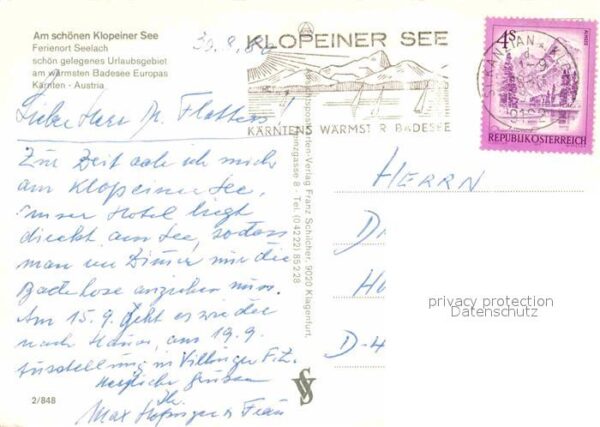 Am schönen Klopeiner See
Ferienort Seelach
schön gelegenes Urlaubsgebiet
am wärmsten Badesee Europas
Kärnten - Austria
30.8.80
KLOPEINER SEE
KÄRNTENS WÄRMSTER BADESEE
4S
REPUBLIK ÖSTERREICH
Lieber Herr Dr.
Zur Zeit aale ich mich
am Klopeiner See,
unser Hotel liegt
direkt am See, sodass
man im Zimmer nur die
Badehose anziehen muss.
Am 15.9. geht es wieder
nach Hause, am 19.9.
Ausstellung in Villingen
Herzliche Grüsse
Ihr
Max
Frau
2/848
Verlag Franz Schilcher, 9020 Klagenfurt.
gasse 8 - Tel. (0 42 22) 85 2 28
HERRN
D
H
D-4
privacy protection
Datenschutz